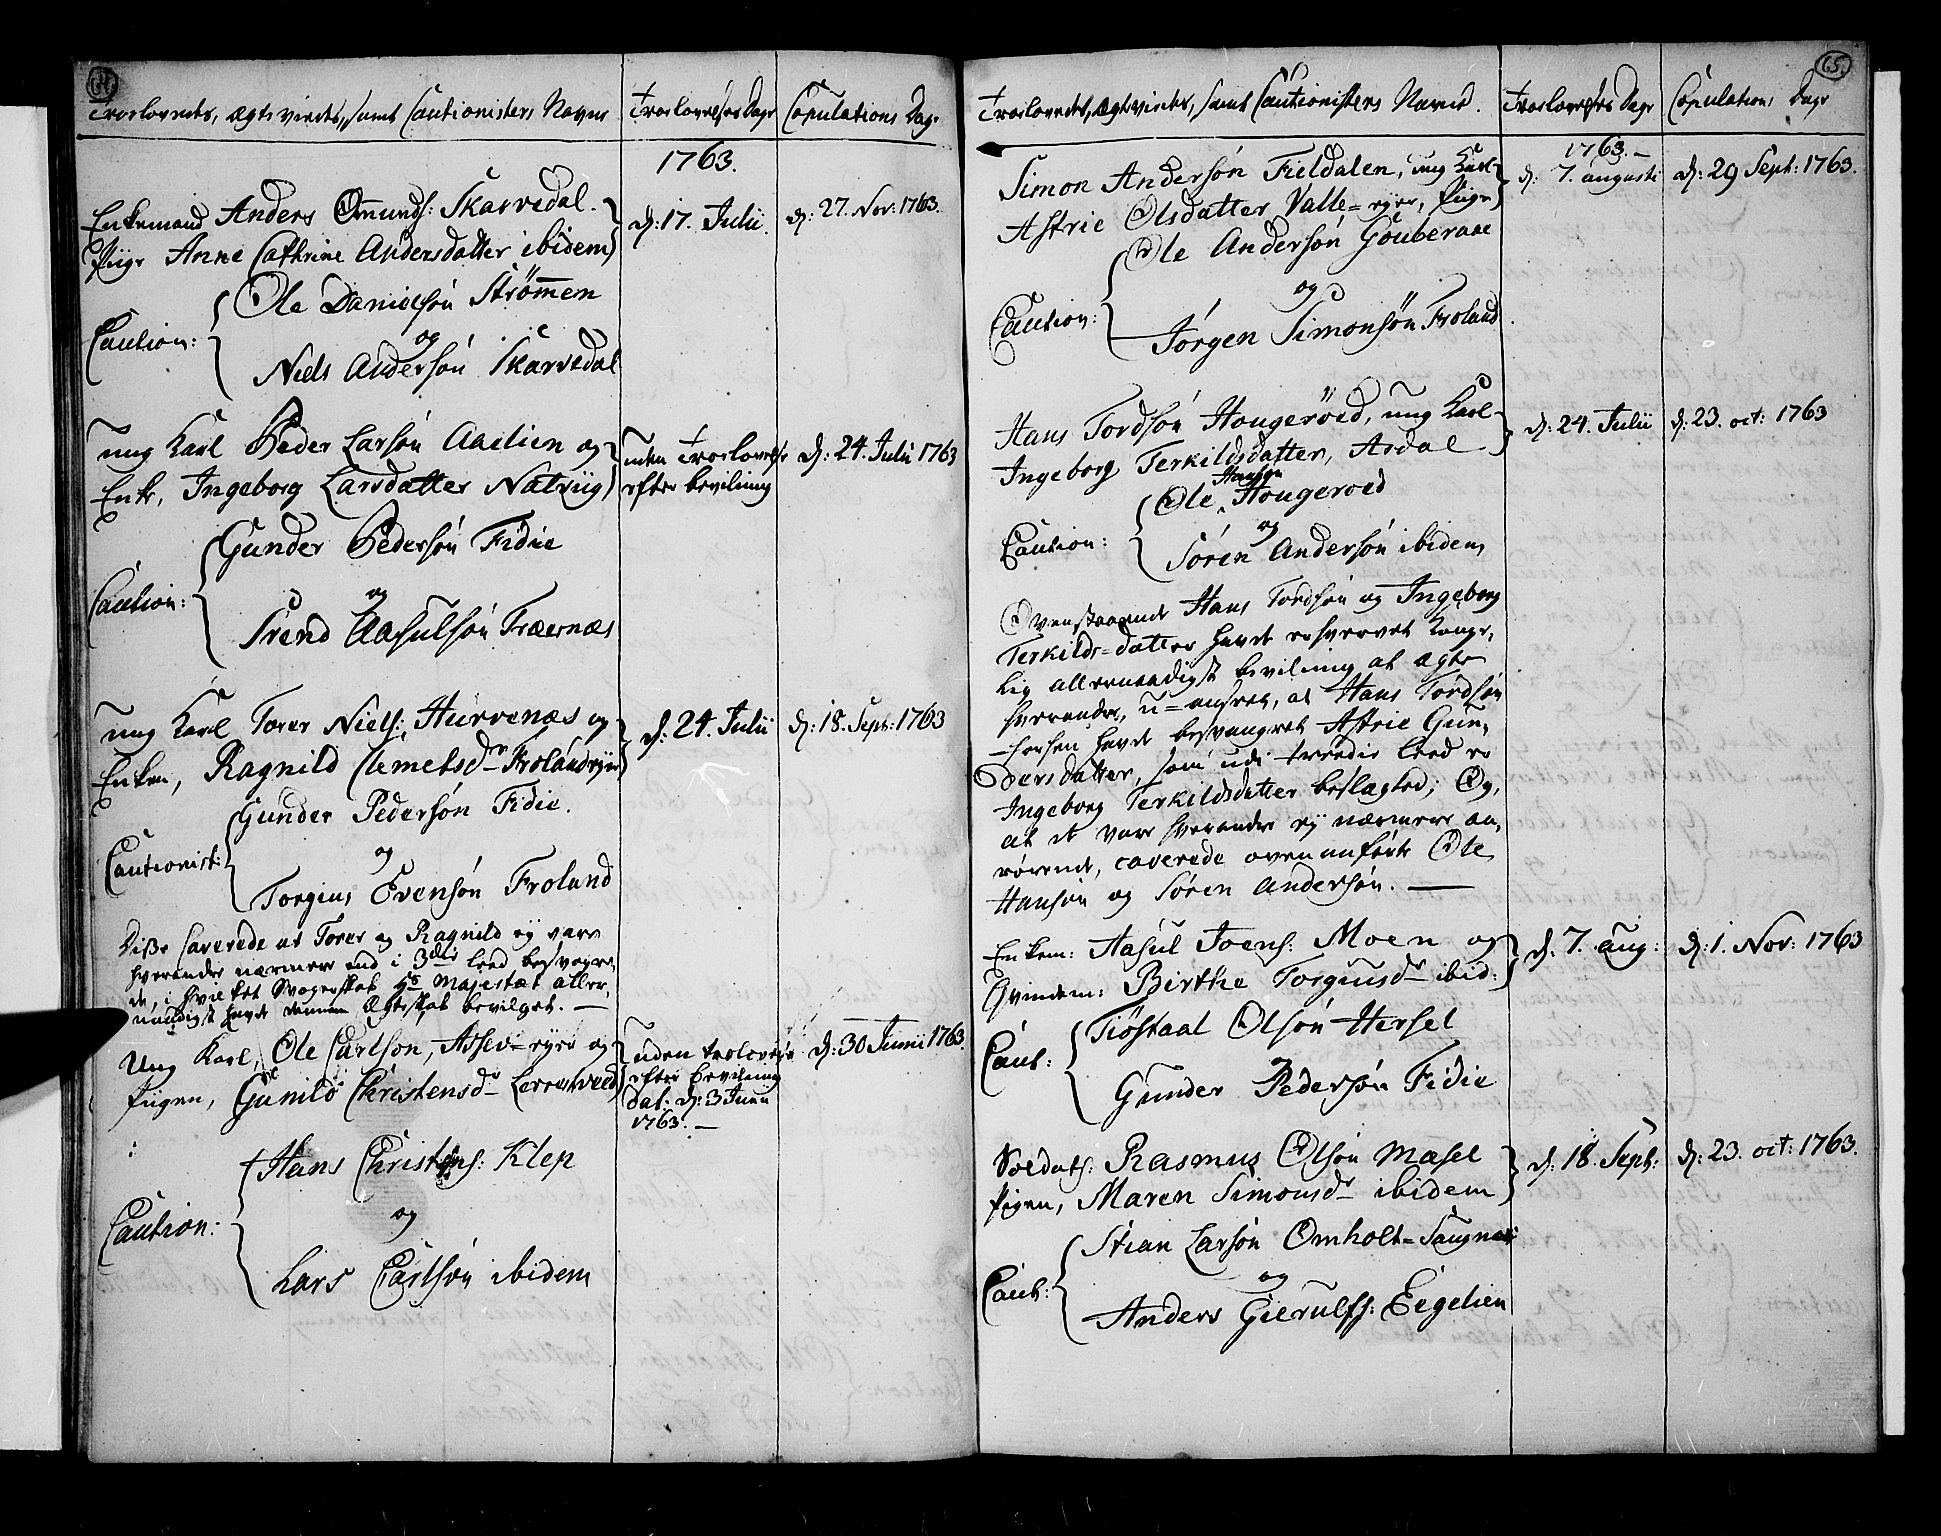 64.
Troelovedes, Ægteviedes, samt Cautionisters Navne
Troelovelses Dage
Copulations Dage
1763.
Enkemand Anders Omunds: Skarvedal
Pige Anne Cathrine Andersdatter ibidem
d: 17. Julii.
d: 27. Nov: 1763.
Caution:
Ole Danielsøn Strømmen
og
Niels Andersøn Skarvedal
ung Karl Peder Larsøn Aaelien og
Enke, Ingeborg Larsdatter Natvig
uden Troelovelse
efter bevilning
d: 24. Julii 1763
Caution:
Gunder Pedersøn Fidie
og
Trend Aasulsøn Træernæs
ung Karl Torer Niels: Hurvenæs og
Enken, Ragnild Clemetsdr Frolandseje
d: 24. Julii
d: 18. Sept: 1763
Cautionist:
Gunder Pedersøn Fidie.
og
Torgius Evensøn Froland
Disse Caverede at Torer og Ragnild ey vare
hverandre nærmere end i 3die Leed besvogre-
de, i hvilket Svogerskab Hs Majestæt aller-
naadigst havde dennem Ægteskab bevilget. —
Ung Karl, Ole Carlson, Assev-eyre og
Pigen, Gunild Christensdr Lerestveed
uden trolovelse
efter bevilning
dat. d: 3 Junii
1763. —
d: 30 Junii 1763.
Caution:
Hans Christens: Klep
og
Lars Carlsøn ibidem
65.
Troelovedes, Ægteviedes, samt Cautionisters Navne.
Troelovelses Dage
Copulations Dage
1763. —
Simon Andersøn Fieldalen, ung Karl
Astrie Olsdatter Valle-eyer, Pige
d: 7. augusti
d: 29 Sept: 1763.
Caution:
Ole Andersøn Gouberaae
og
Jørgen Simonsøn Froland
Hans Tordsøn Hougerøed, ung Karl
Ingeborg Terkildsdatter, Ardal
d: 24. Julii
d: 23. oct: 1763
Caution:
Hansøn
Ole Hougeroed
og
Søren Andersøn ibidem,
Ovenstaaende Hans Tordsøn og Ingeborg
Terkilds-datter havde erhvervet Konge-
lig allernaadigst bevilning at ægte
hverandre, u-anseet, at Hans Tordsøn
forhen havde besvangret Astrie Gun-
dersdatter, som udi tredie leed er
Ingeborg Terkildsdatter beslægted; Og,
at de vare hverandre ey nærmere an-
rørende, caverede ovenanførte Ole
Hansøn og Søren Andersøn. —
Enkem: Aasul Joens: Moen og
Qvindem: Birthe Torgiusdr ibid:
d: 7. aug:
d: 1. Nov: 1763
Caut:
Tiøstaal Olsøn Hersel
Gunder Pedersøn Fidie
Soldat: Rasmus Olsøn Mæsel
Pigen, Maren Simonsdr ibidem
d: 18. Sept:
d: 23. oct: 1763.
Caut:
Stian Larsøn Omholt-Saugnæs
og
Anders Gierulfs: Eigelien